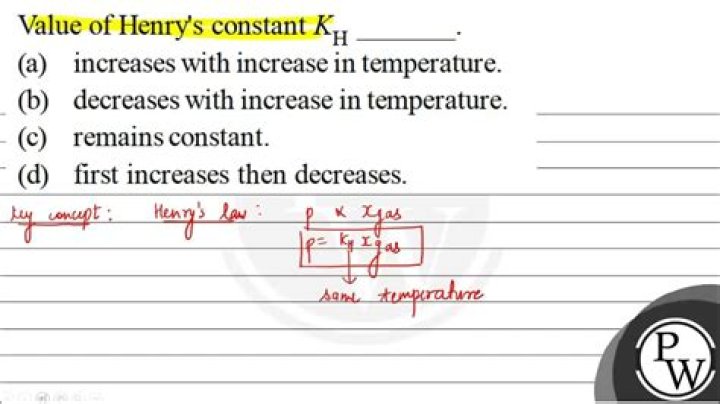 Value of Henry's constant K_H ________.
(a) increases with increase in temperature.
(b) decreases with increase in temperature.
(c) remains constant.
(d) first increases then decreases.
key concept : Henry's law : p ∝ x gas
p = K_H x gas
same temperature
P
W